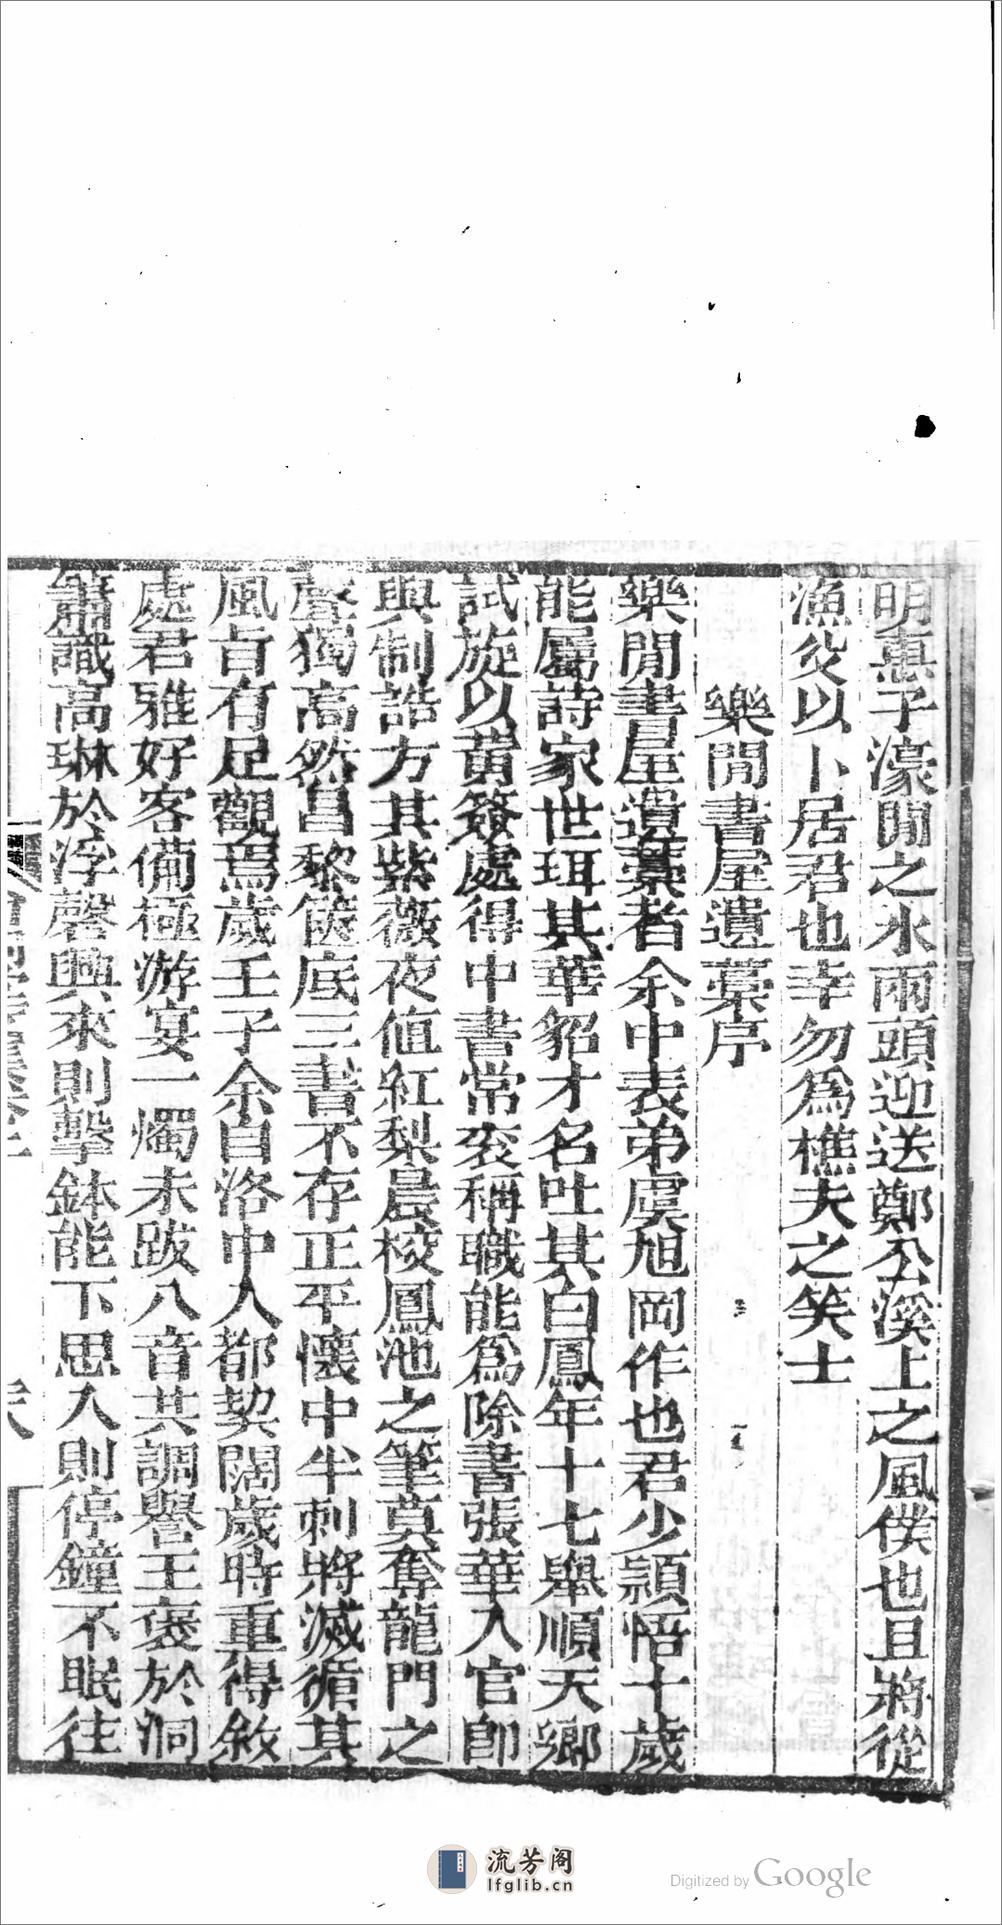 明惠子濠閒之水兩頭迎送鄭公溪上之風僕也且將從
漁父以卜居君也幸勿為樵夫之笑士
樂閒書屋遺藁序
樂閒書屋遺藁者余中表弟虞旭岡作也君少穎悟十歲
能屬詩家世珥其華貂才名吐其白鳳年十七舉順天鄉
試旋以黃簽處得中書常袞稱職能為除書張華入官即
與制誥方其紫薇夜值紅梨晨校鳳池之筆莫奪龍門之
聲獨高然昌黎篋底三書不存正平懷中半刺將滅循其
風旨有足觀焉歲壬子余自洛中入都契闊歲時重得敘
處君雅好客備極游宴一燭未跋八音其調譽王褒於洞
簫識高琳於浮磬興來則擊鉢能下思入則停鐘不眠往
流芳阁
lfglib.cn
Digitized by Google